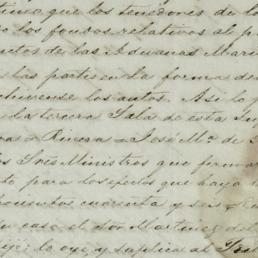 que los tenedores de
los fondos relativos al
de las Aduanas Marí
las partes en la forma de
chívense los autos. Así lo
la tercera Sala de esta Su
Rivera = José Ma. de
Tres Ministros que forma
to para los efectos que haya
cuarenta y seis =
caso el Sor Martinez
dije: lo oye, y suplica al